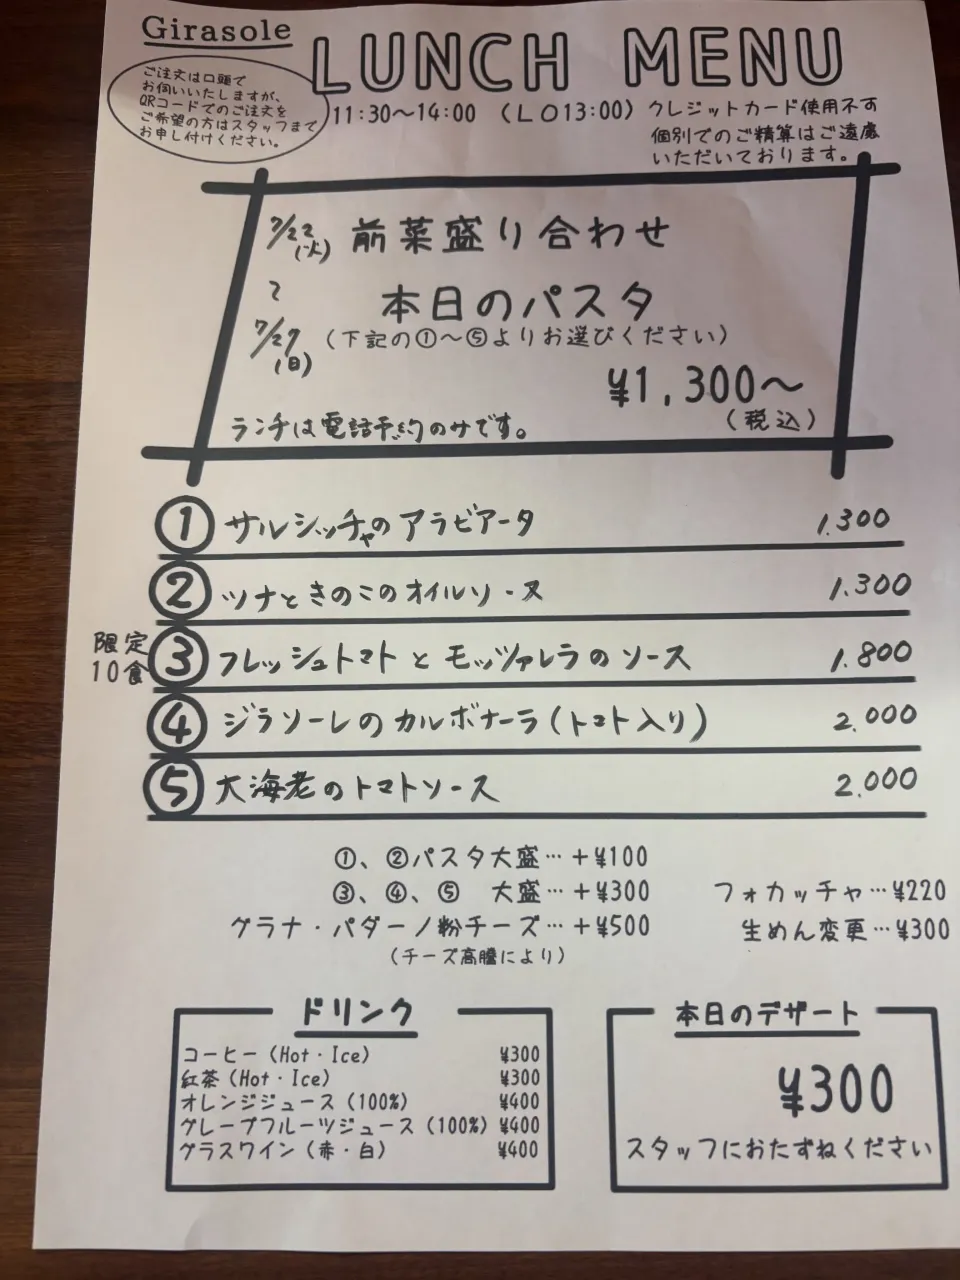 Girasole
LUNCH MENU
ご注文は口頭で
お伺いいたしますが、
QRコードでのご注文を
ご希望の方はスタッフまで
お申し付けください。
11:30～14:00 （LO13:00）
クレジットカード使用不可
個別でのご精算はご遠慮
いただいております。
7/22(火)
～
7/27(日)
前菜盛り合わせ
本日のパスタ
（下記の①～⑤よりお選びください）
¥1,300～
（税込）
ランチは電話予約のみです。
① サルシッチャのアラビアータ 1.300
② ツナときのこのオイルソース 1.300
限定
10食
③ フレッシュトマトとモッツァレラのソース 1.800
④ ジラソーレのカルボナーラ(トマト入り) 2.000
⑤ 大海老のトマトソース 2.000
①、②パスタ大盛…＋¥100
③、④、⑤ 大盛…＋¥300
グラナ・パダーノ粉チーズ…＋¥500
（チーズ高騰により）
フォカッチャ…¥220
生めん変更…¥300
ドリンク
コーヒー（Hot・Ice） ¥300
紅茶（Hot・Ice） ¥300
オレンジジュース（100%） ¥400
グレープフルーツジュース（100%） ¥400
グラスワイン（赤・白） ¥400
本日のデザート
¥300
スタッフにおたずねください